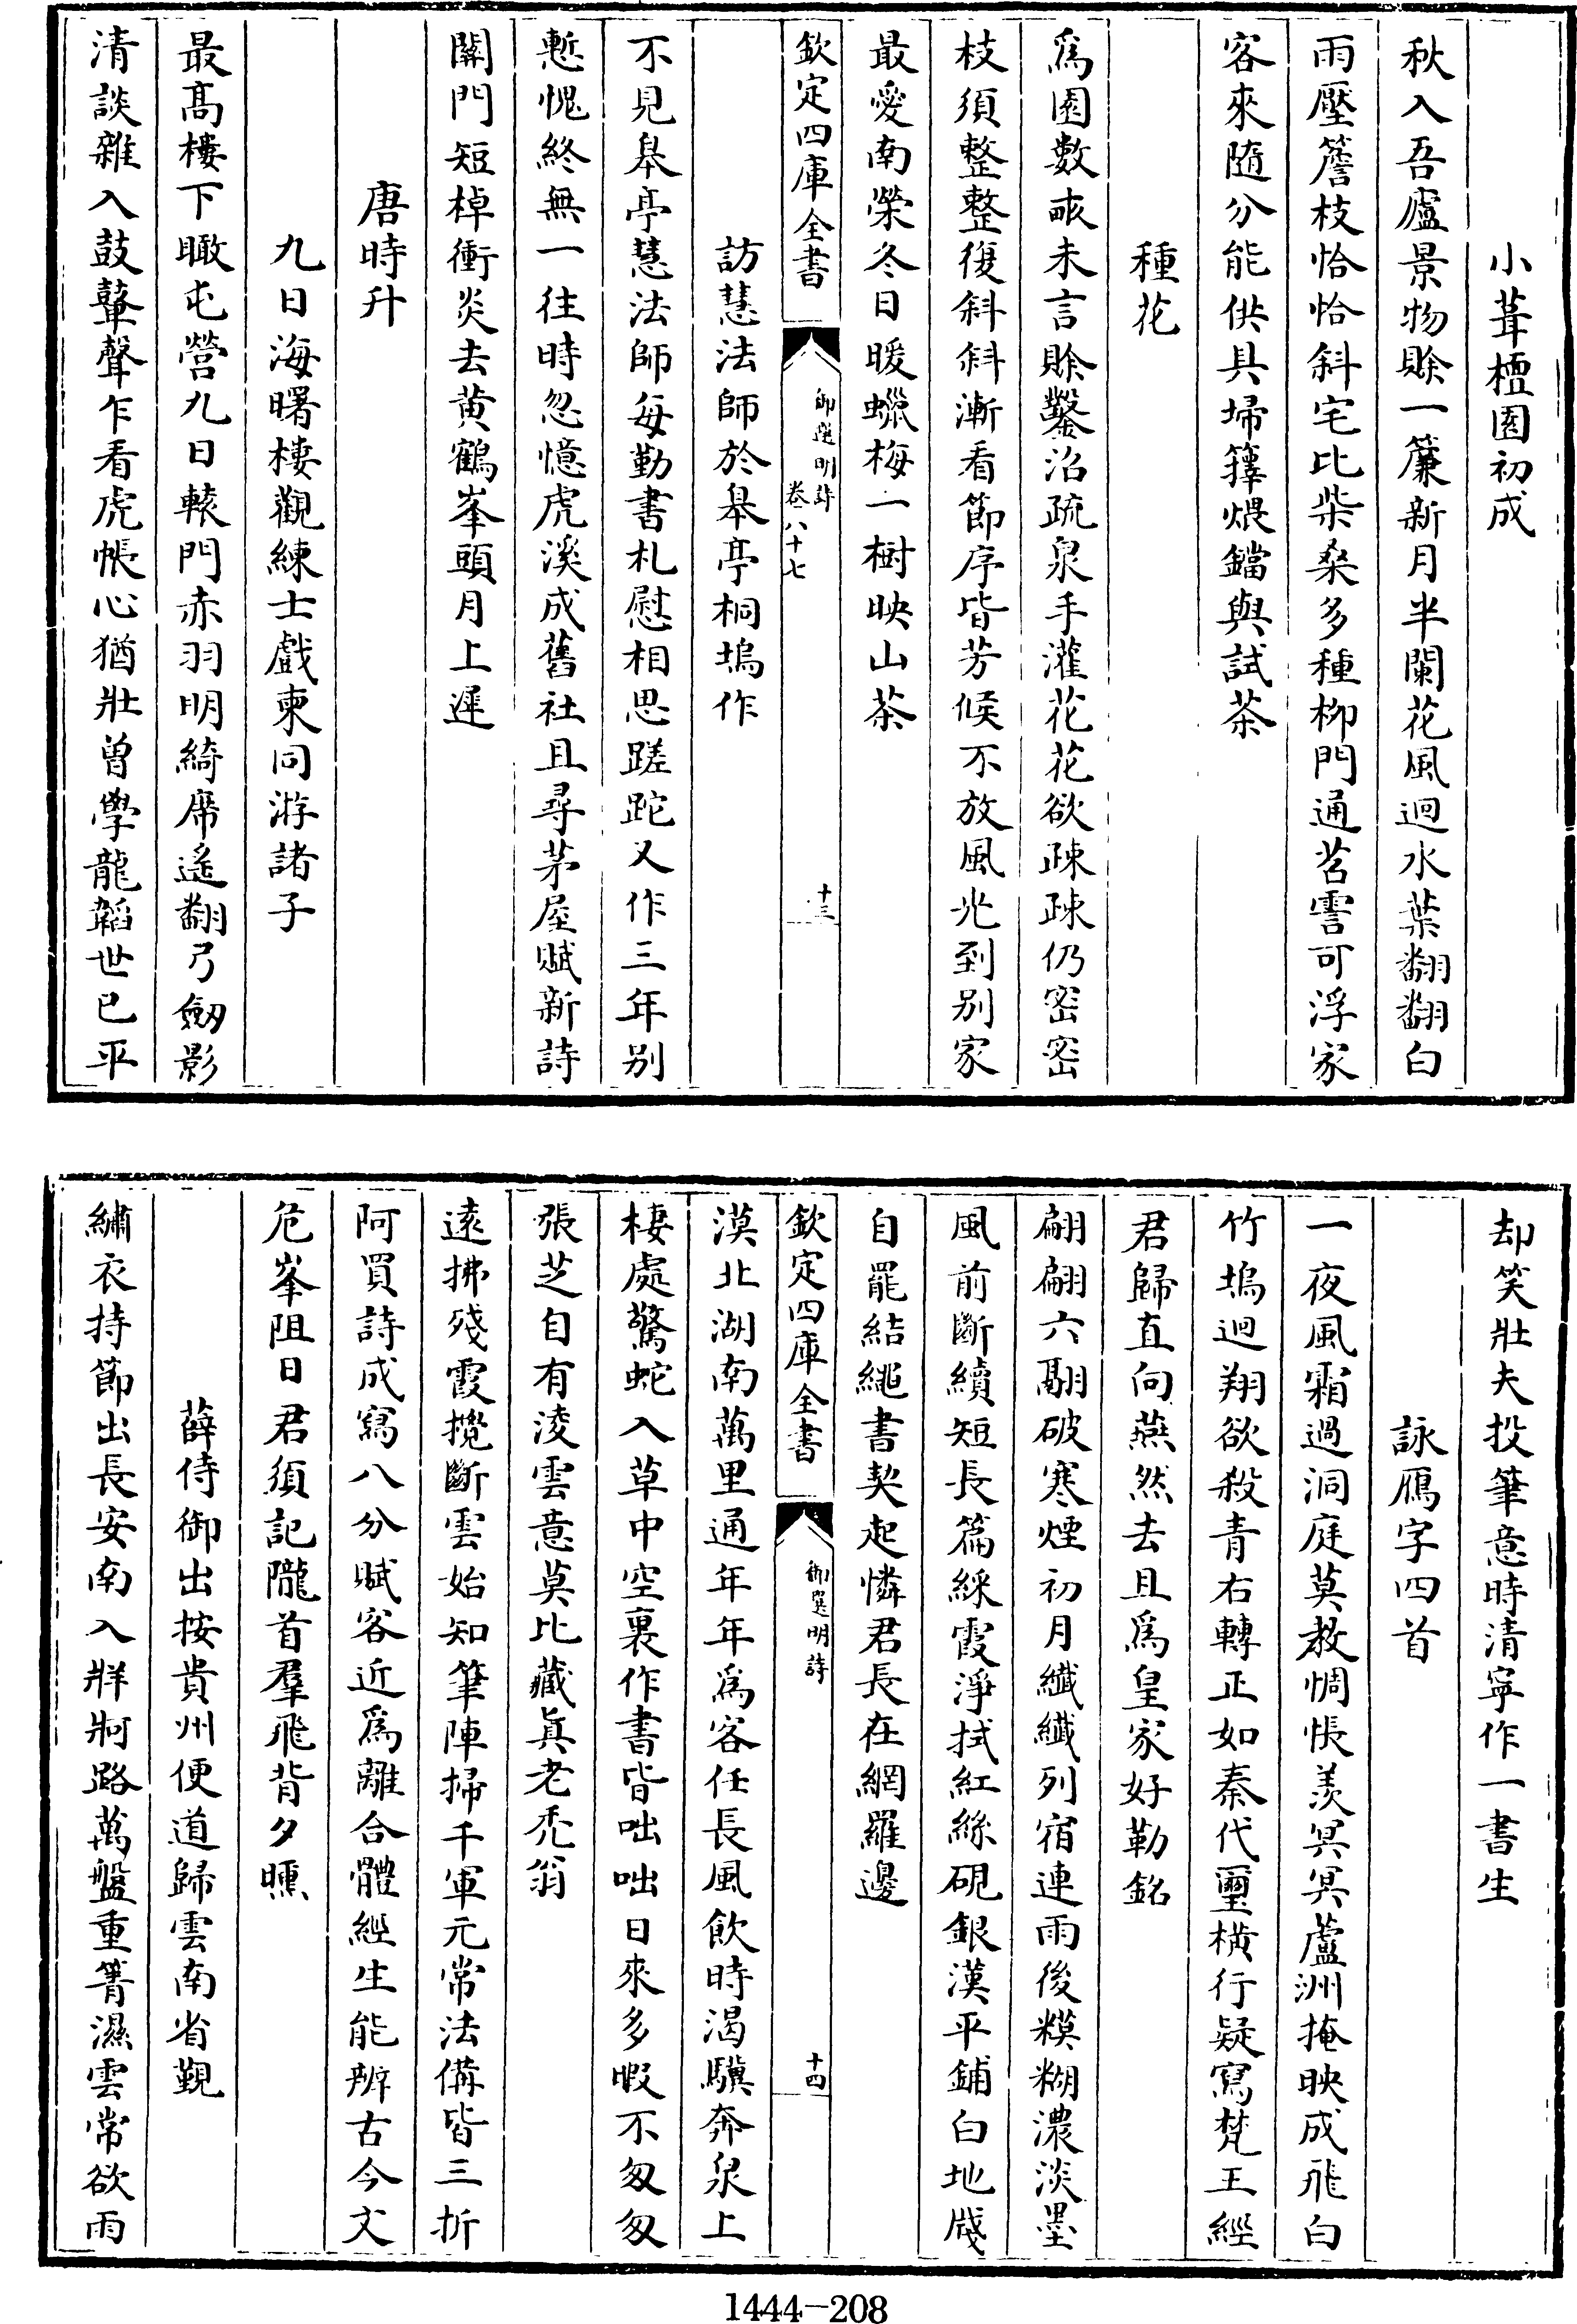 小葺檀園初成
秋入吾廬景物賖一簾新月半闌花風迴水葉翻翻白
雨壓簷枝恰恰斜宅比柴桑多種柳門通苕霅可浮家
客來隨分能供具埽籜煨鐺與試茶
種花
爲園數畝未言賖鑿沼疏泉手灌花花欲疎疎仍密密
枝須整整復斜斜漸看節序皆芳候不放風光到别家
最愛南榮冬日暖蠟梅一樹映山茶
欽定四庫全書
御選明詩
卷八十七
十三
訪慧法師於皋亭桐塢作
不見皋亭慧法師每勤書札慰相思蹉跎又作三年别
慙愧終無一往時忽憶虎溪成舊社且尋茅屋賦新詩
關門短棹衝炎去黄鶴峯頭月上遲
唐時升
九日海曙樓觀練士戲柬同游諸子
最髙樓下瞰屯營九日轅門赤羽明綺席遙翻弓劔影
清談雜入鼓鼙聲乍看虎帳心猶壯曾學龍韜世已平
却笑壯夫投筆意時清寧作一書生
詠鴈字四首
一夜風霜過洞庭莫教惆悵羡冥冥蘆洲掩映成飛白
竹塢迴翔欲殺青右轉正如秦代璽横行疑寫梵王經
君歸直向燕然去且爲皇家好勒銘
翩翩六翮破寒煙初月纖纖列宿連雨後糢糊濃淡墨
風前斷續短長篇綵霞淨拭紅絲硯銀漢平鋪白地牋
自罷結繩書契起憐君長在網羅邊
欽定四庫全書
御選明詩
十四
漠北湖南萬里通年年爲客任長風飲時渴驥奔泉上
棲處驚蛇入草中空裏作書皆咄咄日來多暇不匆匆
張芝自有淩雲意莫比藏眞老秃翁
遠拂殘霞攪斷雲始知筆陣掃千軍元常法備皆三折
阿買詩成寫八分賦客近爲離合體經生能辨古今文
危峯阻日君須記隴首羣飛背夕曛
薛侍御出按貴州便道歸雲南省覲
繡衣持節出長安南入牂牁路萬盤重箐濕雲常欲雨
1444-208